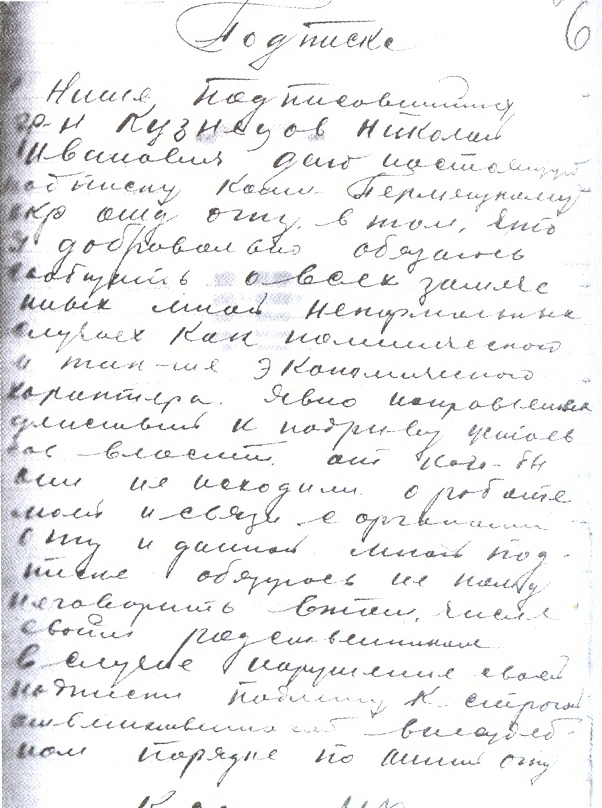 Подписка
6
Ниже подписавшийся
гр-н Кузнецов Николай
Иванович даю настоящую
подписку Коми Пермяцкому
окр отд огпу, в том, что
я добровольно обязаюсь
сообщить о всех замече
нных мной ненормальных
случаех как политического
и экономического
характера. Явно направленных
к подрыву устоев
сов власти от кого-бы
они не исходили о работе
моей и связи с органами
Огпу и данной мной под-
писке обязуюсь не кому
неговорить втом, числе
своим родственикам
в случае нарушения своей
подписки подлежу к строгой
внесудеб-
ном порядке по линии огпу